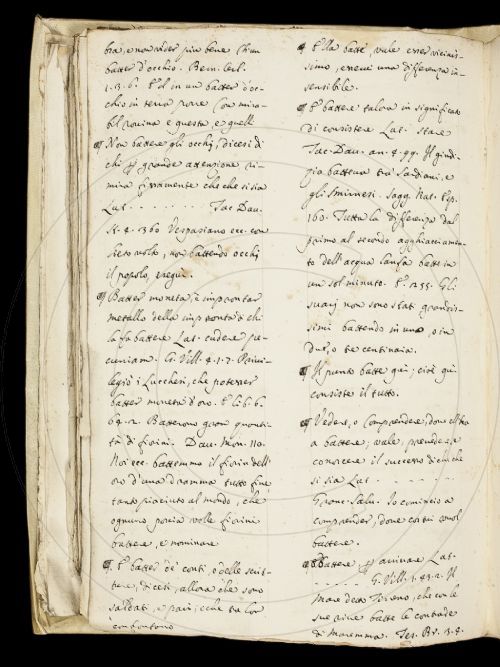 bra, e non vider più bene l'hun
batter d'occhio. Bern. Orl.
1.13.6. E'l in un batter d'oc-
chio in terra pone Con mira-
bil rovina e questa, e quell
¶ Non battere gli occhj, dicesi di
chi grande attenzione ri-
mira fissamente che che si sia
Lat. - - - - - - Tac. Dav.
St. 4. 360 Vespasiano ecc. con
lieto volto, non battendo occhj
il popolo, segue.
¶ Batter moneta, è improntar
metallo della impronta di chi
la fa battere Lat. cudere pe-
cuniam. G. Vill. 4.1.7. Privi-
legiò i Lucchesi, che potesser
batter moneta d'oro. E lib. 6.
69.2. Batterono gran quanti-
tà di fiorini. Dav. Mon. 110.
Noi ecc. battemmo il fiorin dell'
oro d'una dramma tutto fine
tanto piaciuto al mondo, che
ognuno, poscia volle fiorini
battere, e nominare
¶ E batter de' conti, o delle scrit-
ture, dicesi, allora che sono
saldati, e pari; e che tra lor
confrontano
¶ Ella batte, vale esser vicinis-
simo, esservi una differenza in-
sensibile.
¶ E battere talora in significato
di consistere Lat. stare
Tac. Dav. an. 4. 99. Il giudi-
zio batteva tra Sardiani, e
gli Smirnesi. Sagg. Nat. Esp.
160. Tutta la differenza dal
primo al secondo agghiacciamen-
to dell'acqua lanfa batte in
un sol minuto. E 255. Gli
svarj non sono stati grandis-
simi battendo in uno, o in
due, o tre centinaia.
¶ Il punto batte qui; cioè qui
consiste il tutto.
¶ Vedere, o Comprendere, dove altri
a battere; vale, prevedere, e
conoscere il successo di ciò che
si sia Lat. - - - - -
Granc. Salv. Io comincio a
comprender, dove costui vuol
battere.
¶ Battere arrivare Lat.
- - - - - G. Vill. 1.43.2. Il
Mare detto Tirreno, che con le
sue rive batte le contrade
di Maremma. Tes. Br. 3.4.